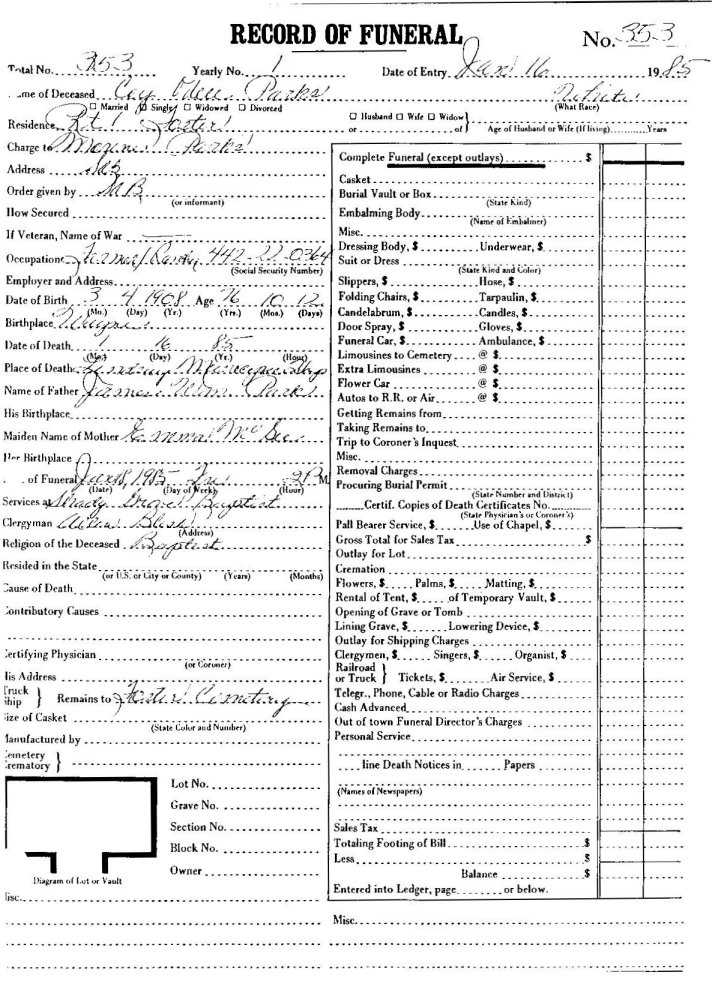 RECORD OF FUNERAL
No. 353
Total No. 353 Yearly No. 1 Date of Entry Jan 16 1985
me of Deceased Coy Odell Parks White
☐ Married ☑ Single ☐ Widowed ☐ Divorced (What Race)
Residence Rt 1 Foster
☐ Husband ☐ Wife ☐ Widow}
or of} Age of Husband or Wife (If living) Years
Charge to Parks
Address
Order given by
(or informant)
How Secured
If Veteran, Name of War
Occupation Farmer/ 442-22-0364
(Social Security Number)
Employer and Address
Date of Birth 3 4 1908 Age 76 10 12
(Mo.) (Day) (Yr.) (Yrs.) (Mos.) (Days)
Birthplace Wayne
Date of Death 1 16 85
(Mo.) (Day) (Yr.) (Hour)
Place of Death Lindsay Municipal Hosp
Name of Father James Parks
His Birthplace
Maiden Name of Mother Emma McGee
Her Birthplace
of Funeral Jan 18, 1985 Fri 2 P M.
(Date) (Day of Week) (Hour)
Services at Shady Grove Baptist
Clergyman
(Address)
Religion of the Deceased Baptist
Resided in the State
(or U.S. or City or County) (Years) (Months)
Cause of Death
Contributory Causes
Certifying Physician
(or Coroner)
His Address
Truck }
Ship } Remains to Foster Cemetery
Size of Casket
(State Color and Number)
Manufactured by
Cemetery }
Crematory }
Lot No.
Grave No.
Section No.
Block No.
Owner
Diagram of Lot or Vault
Misc.
Complete Funeral (except outlays) $
Casket
Burial Vault or Box
(State Kind)
Embalming Body
(Name of Embalmer)
Misc.
Dressing Body, $ Underwear, $
Suit or Dress
(State Kind and Color)
Slippers, $ Hose, $
Folding Chairs, $ Tarpaulin, $
Candelabrum, $ Candles, $
Door Spray, $ Gloves, $
Funeral Car, $ Ambulance, $
Limousines to Cemetery @ $
Extra Limousines @ $
Flower Car @ $
Autos to R.R. or Air @ $
Getting Remains from
Taking Remains to
Trip to Coroner's Inquest
Misc.
Removal Charges
Procuring Burial Permit
(State Number and District)
Certif. Copies of Death Certificates No.
(State Physician's or Coroner's)
Pall Bearer Service, $ Use of Chapel, $
Gross Total for Sales Tax $
Outlay for Lot
Cremation
Flowers, $ Palms, $ Matting, $
Rental of Tent, $ of Temporary Vault, $
Opening of Grave or Tomb
Lining Grave, $ Lowering Device, $
Outlay for Shipping Charges
Clergymen, $ Singers, $ Organist, $
Railroad }
or Truck } Tickets, $ Air Service, $
Telegr., Phone, Cable or Radio Charges
Cash Advanced
Out of town Funeral Director's Charges
Personal Service
line Death Notices in Papers
(Names of Newspapers)
Sales Tax
Totaling Footing of Bill $
Less $
Balance $
Entered into Ledger, page or below.
Misc.